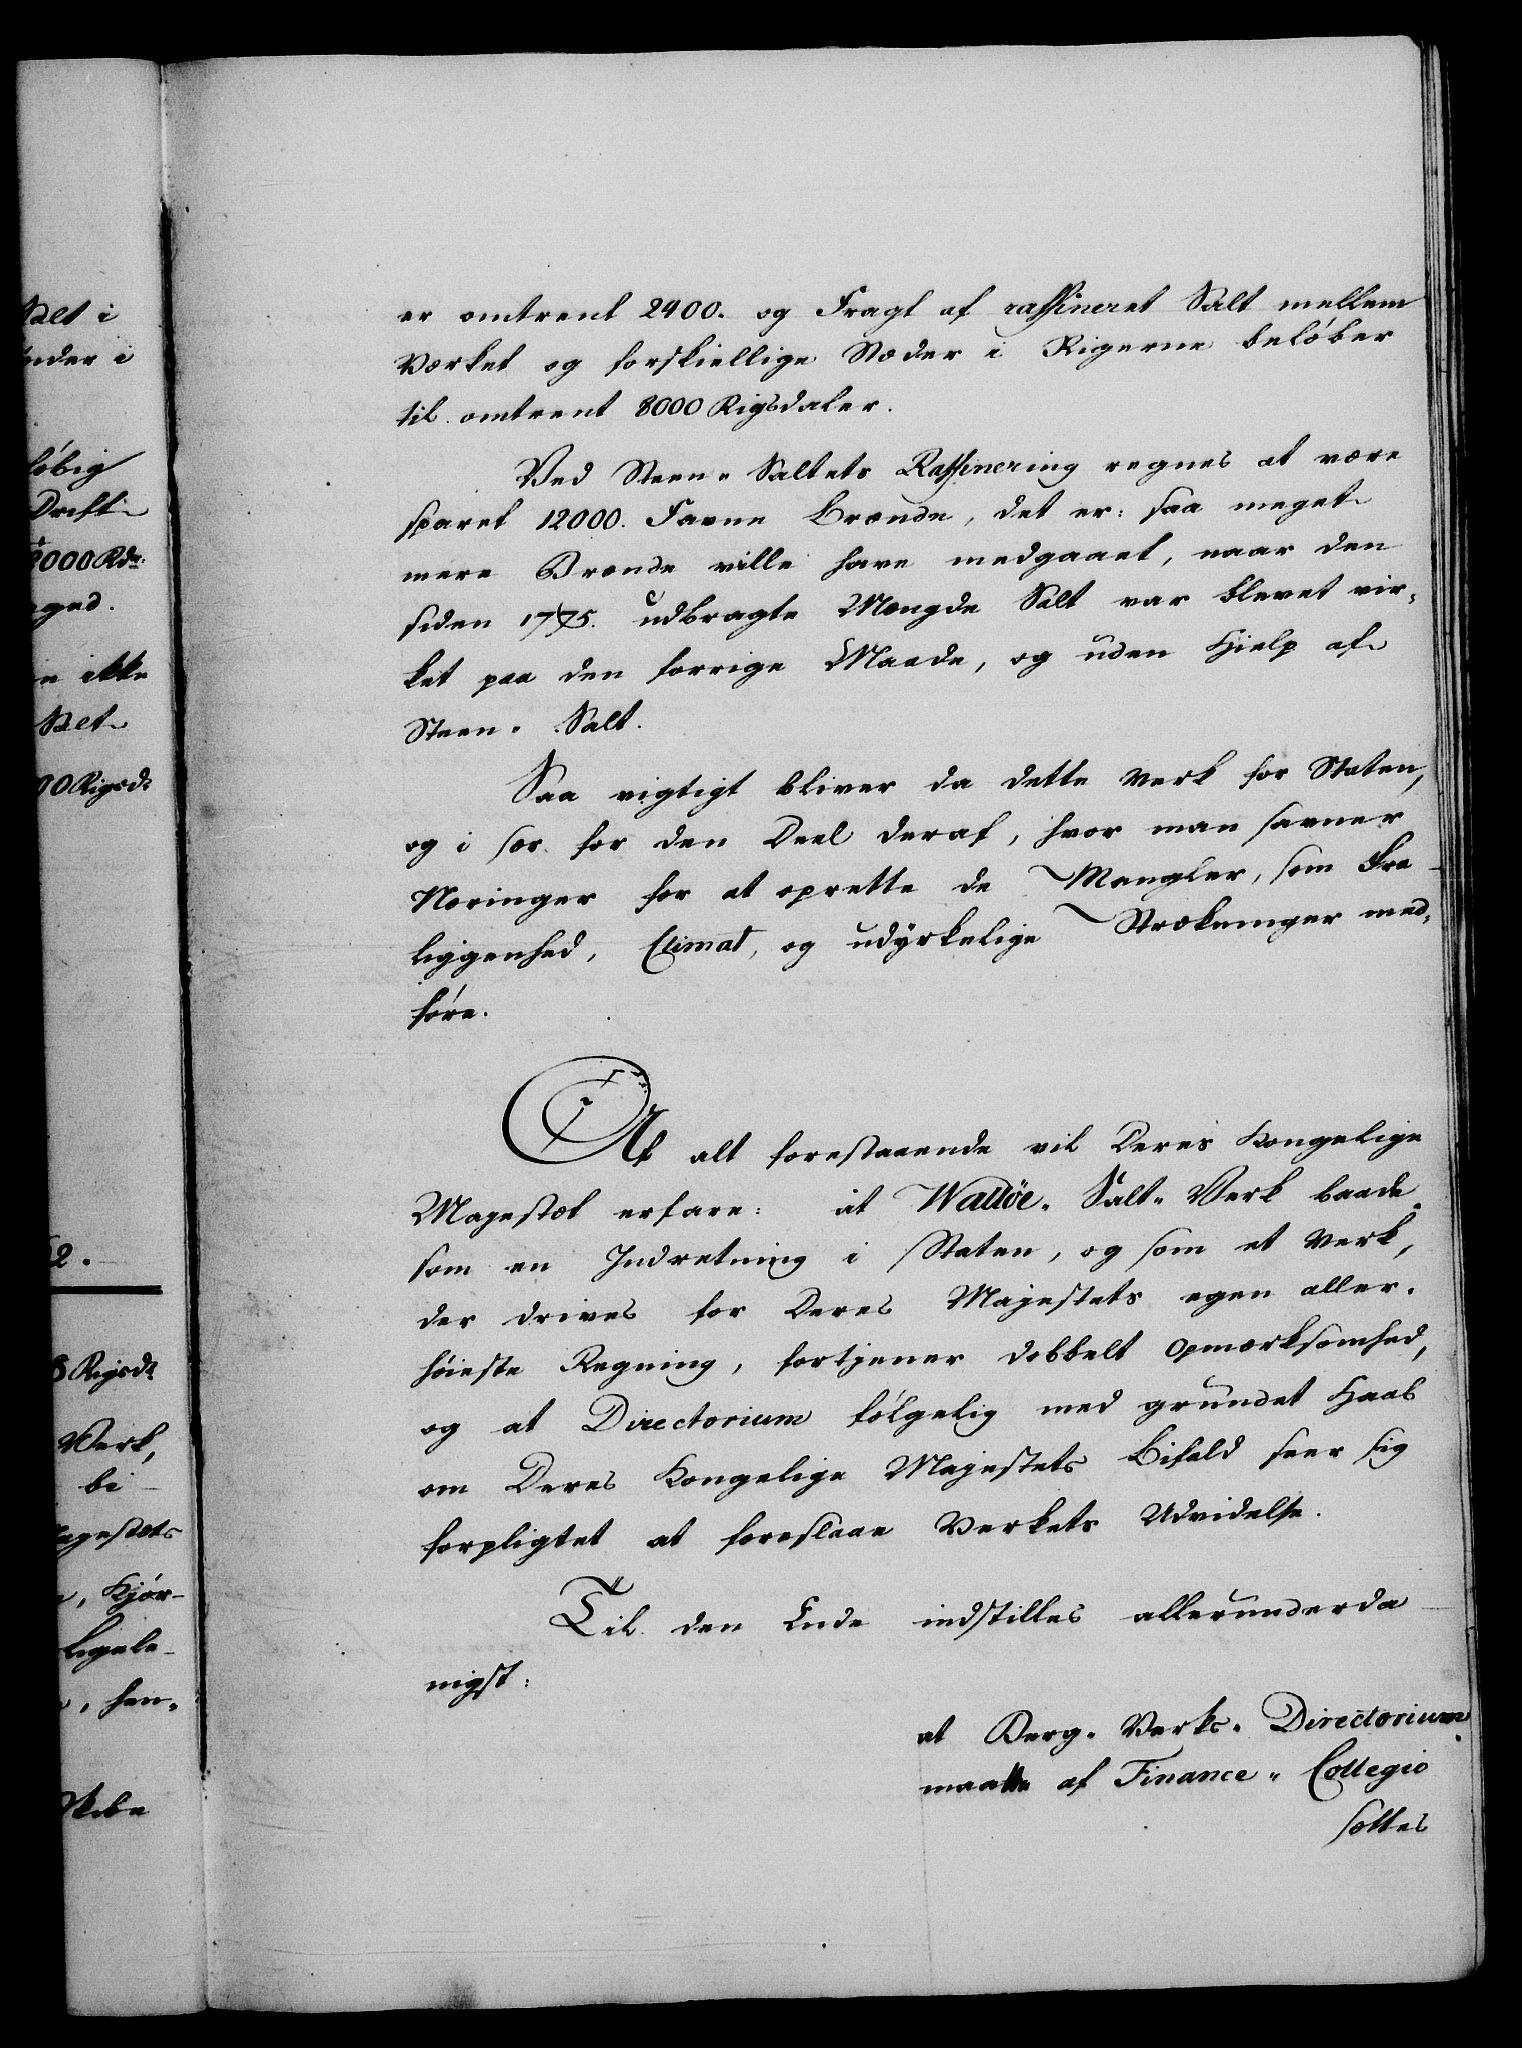 er omtrent 2400. og Fragt af raffineret Salt mellem
Værket og forskiellige Stæder i Rigerne beløber
til omtrent 8000 Rigsdaler.
Ved Steen-Saltets Raffinering regnes at være
sparet 12000. Favne Brænde, det er: saa meget
mere Brænde ville have medgaaet, naar den
siden 1775. udbragte Mængde Salt var blevet vir-
ket paa den forrige Maade, og uden Hielp af
Steen-Salt.
Saa vigtigt bliver da dette Verk for Staten,
og i sær for den Deel deraf, hvor man savner
Næringer for at oprette de Mangler, som Fra-
liggenhed, Climat, og udyrkelige Strækninger med-
føre.
Af alt forestaaende vil Deres Kongelige
Majestæt erfare: at Walløe-Salt-Verk baade
som en Indretning i Staten, og som et Verk,
der drives for Deres Majestæts egen aller-
høieste Regning, fortjener dobbelt Opmærksomhed,
og at Directorium følgelig med grundet Haab
om Deres Kongelige Majestæts Bifald seer sig
forpligtet at foreslaae Verkets Udvidelse.
Til den Ende indstilles allerunderda-
nigst:
at Berg-Verks-Directorium
maatte af Finance-Collegio
sættes